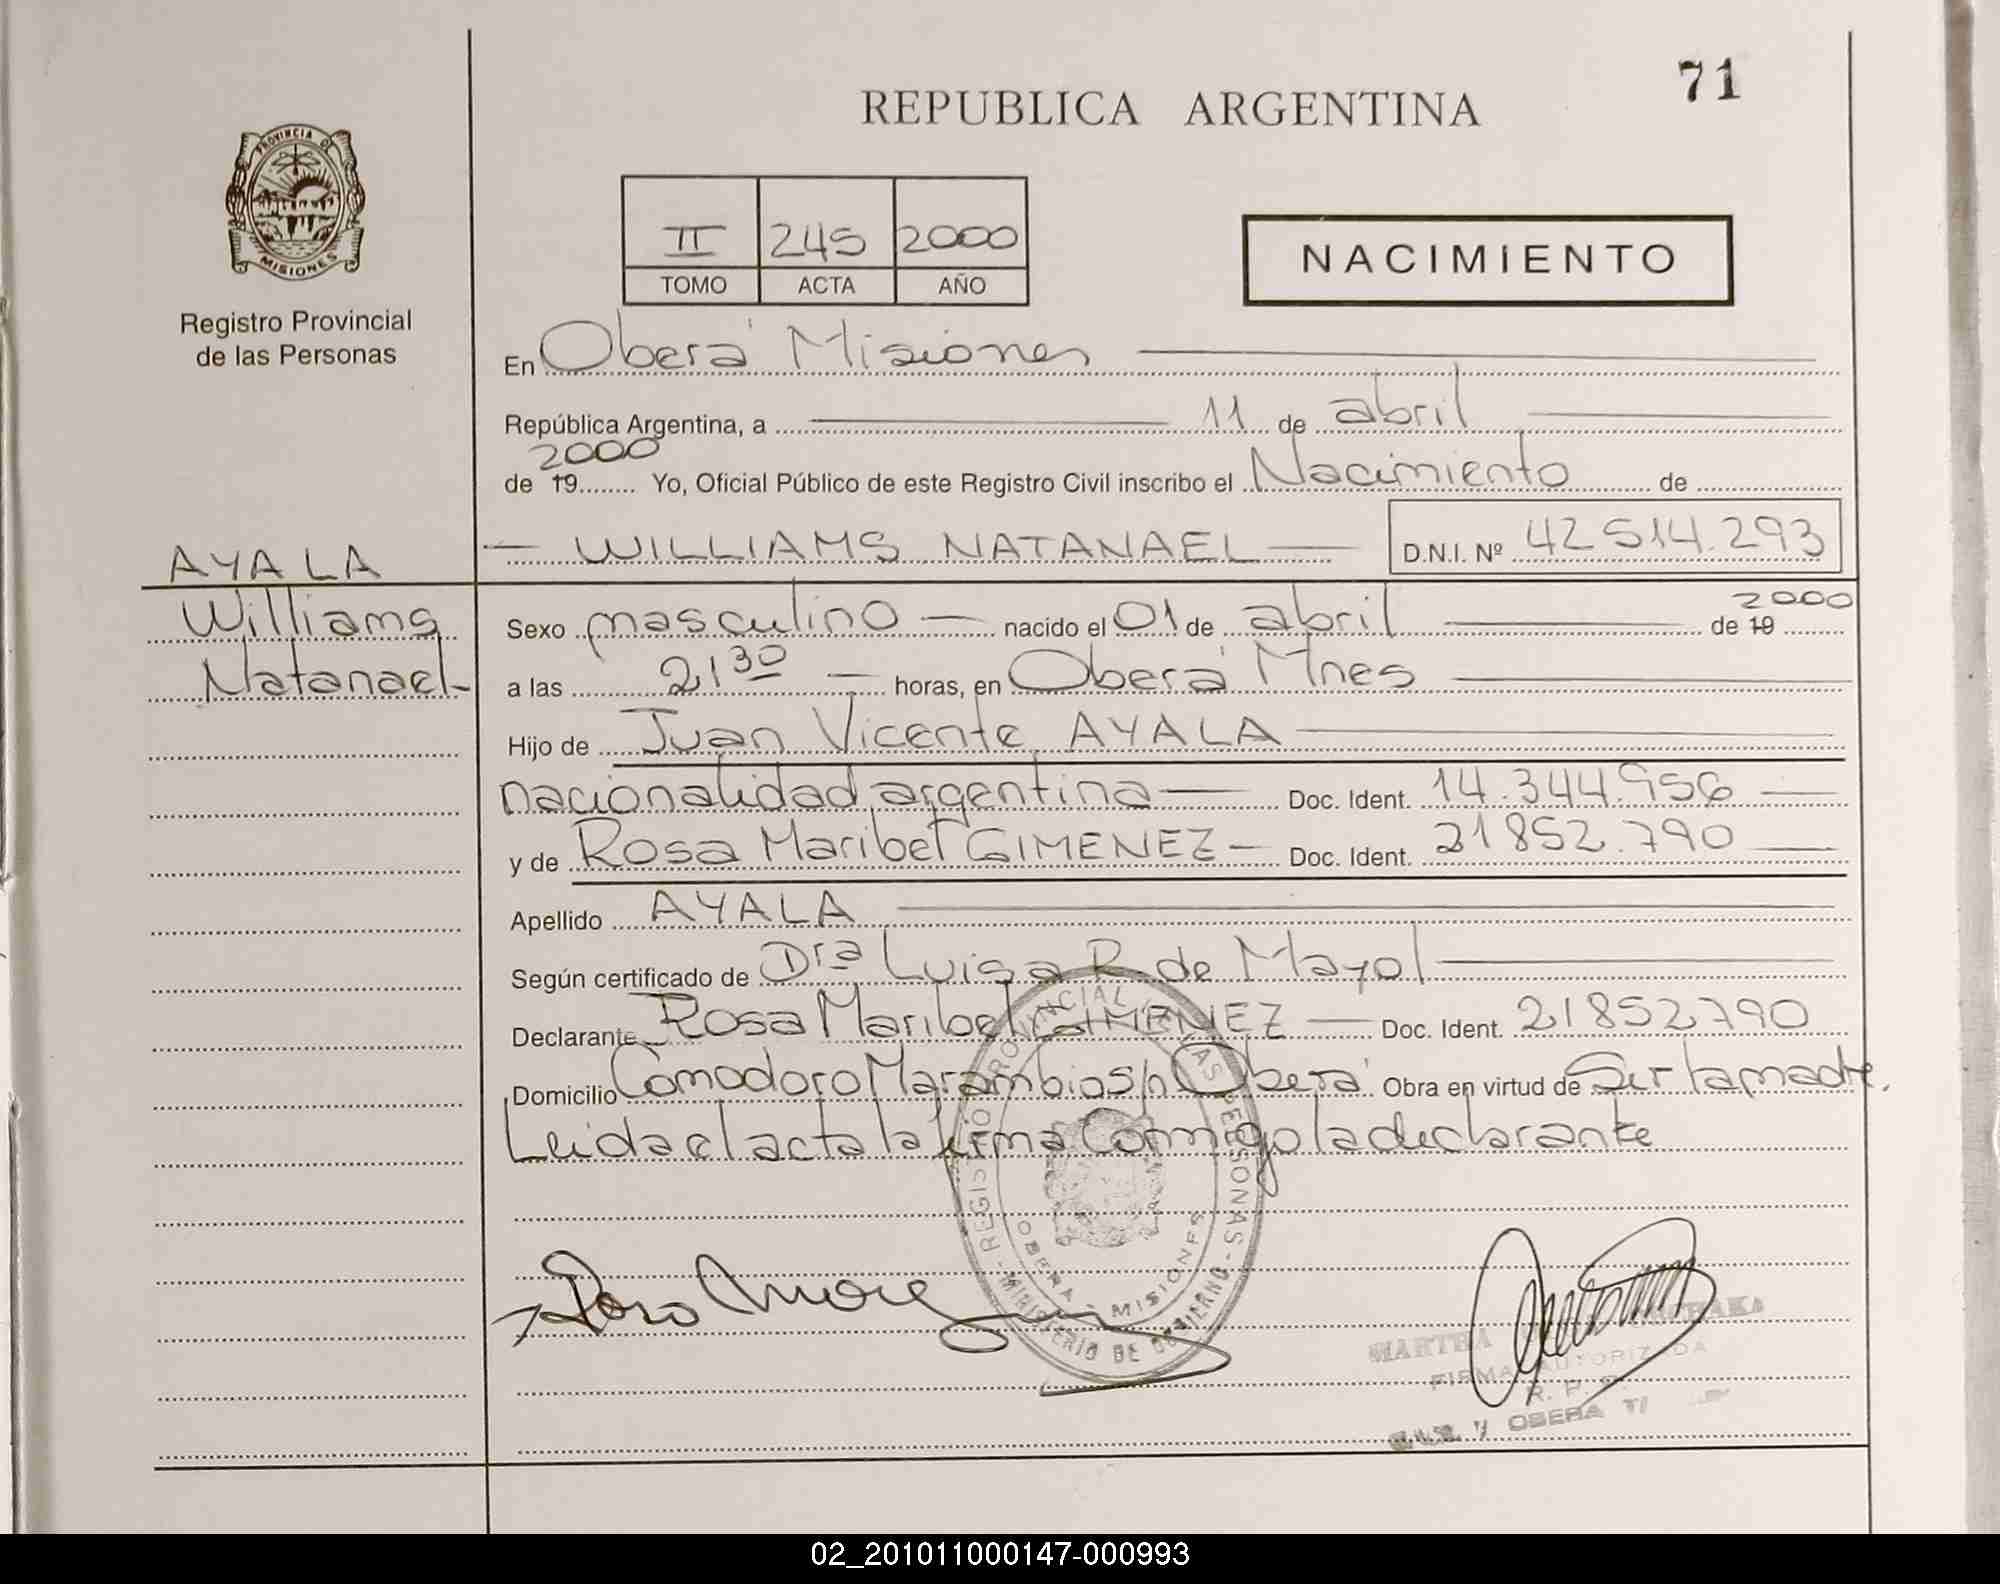 71
REPUBLICA ARGENTINA
PROVINCIA DE
MISIONES
Registro Provincial
de las Personas
II 245 2000
TOMO ACTA AÑO
NACIMIENTO
En Obera' Misiones
República Argentina, a 11 de abril
2000
de 19 Yo, Oficial Público de este Registro Civil inscribo el Nacimiento de
AYALA
WILLIAMS NATANAEL D.N.I. Nº 42514.293
Williams
Natanael
Sexo masculino nacido el 01 de abril de 19 2000
a las 21 30 horas, en Obera' Mnes
Hijo de Juan Vicente AYALA
nacionalidad argentina Doc. Ident. 14.344.956
y de Rosa Maribel GIMENEZ Doc. Ident. 21852.790
Apellido AYALA
Según certificado de Dra Luisa R. de Mayol
Declarante Rosa Maribel GIMENEZ Doc. Ident. 21852790
Domicilio Comodoro Marambio s/n Obera' Obra en virtud de Ser la madre.
Leida el acta la firma Conmigo la declarante
REGISTRO PROVINCIAL DE LAS PERSONAS - MINISTERIO DE GOBIERNO -
OBERA MISIONES
MARTHA
FIRMA AUTORIZADA
R. P. P.
OBERA
02_201011000147-000993